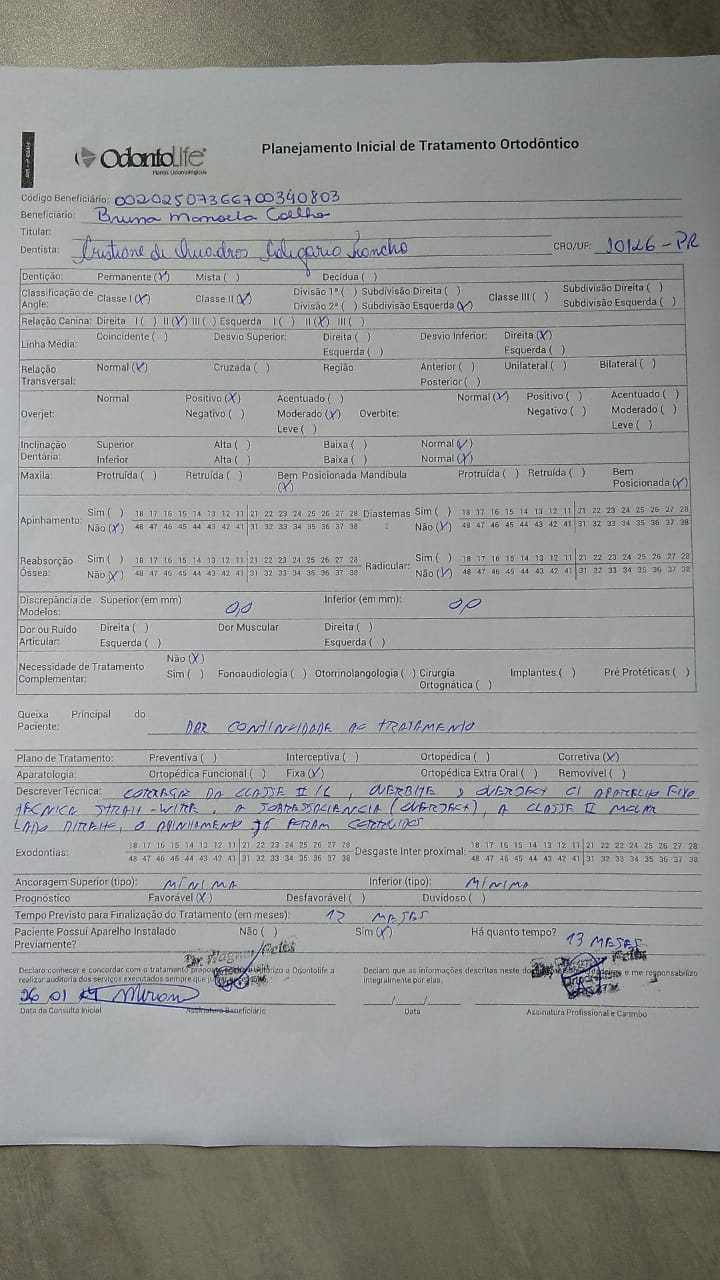 OdontoLife
Planos Odontológicos
Planejamento Inicial de Tratamento Ortodôntico
Código Beneficiário: 00202507366700340803
Beneficiário: Bruna Manoela Coelho
Titular:
Dentista: Cristiane de Quadros CRO/UF: 10126-PR
Dentição: Permanente (X) Mista ( ) Decídua ( )
Classificação de Angle: Classe I (X) Classe II (X) Divisão 1ª ( ) Subdivisão Direita ( ) Classe III ( ) Subdivisão Direita ( )
Divisão 2ª ( ) Subdivisão Esquerda (X) Subdivisão Esquerda ( )
Relação Canina: Direita I ( ) II (X) III ( ) Esquerda I ( ) II (X) III ( )
Linha Média: Coincidente ( ) Desvio Superior: Direita ( ) Desvio Inferior: Direita (X)
Esquerda ( ) Esquerda ( )
Relação Transversal: Normal (X) Cruzada ( ) Região Anterior ( ) Unilateral ( ) Bilateral ( )
Posterior ( )
Overjet: Normal Positivo (X) Acentuado ( ) Overbite: Normal (X) Positivo ( ) Acentuado ( )
Negativo ( ) Moderado (X) Negativo ( ) Moderado ( )
Leve ( ) Leve ( )
Inclinação Dentária: Superior Alta ( ) Baixa ( ) Normal (X)
Inferior Alta ( ) Baixa ( ) Normal (X)
Maxila: Protruída ( ) Retruída ( ) Bem Posicionada (X) Mandíbula Protruída ( ) Retruída ( ) Bem Posicionada (X)
Apinhamento: Sim ( ) 18 17 16 15 14 13 12 11 21 22 23 24 25 26 27 28 Diastemas: Sim ( ) 18 17 16 15 14 13 12 11 21 22 23 24 25 26 27 28
Não (X) 48 47 46 45 44 43 42 41 31 32 33 34 35 36 37 38 Não (X) 48 47 46 45 44 43 42 41 31 32 33 34 35 36 37 38
Reabsorção Óssea: Sim ( ) 18 17 16 15 14 13 12 11 21 22 23 24 25 26 27 28 Radicular: Sim ( ) 18 17 16 15 14 13 12 11 21 22 23 24 25 26 27 28
Não (X) 48 47 46 45 44 43 42 41 31 32 33 34 35 36 37 38 Não (X) 48 47 46 45 44 43 42 41 31 32 33 34 35 36 37 38
Discrepância de Modelos: Superior (em mm) 0,0 Inferior (em mm): 0,0
Dor ou Ruído Articular: Direita ( ) Dor Muscular Direita ( )
Esquerda ( ) Esquerda ( )
Necessidade de Tratamento Complementar: Não (X)
Sim ( ) Fonoaudiologia ( ) Otorrinolangologia ( ) Cirurgia Ortognática ( ) Implantes ( ) Pré Protéticas ( )
Queixa Principal do Paciente: DAR CONTINUIDADE AO TRATAMENTO
Plano de Tratamento: Preventiva ( ) Interceptiva ( ) Ortopédica ( ) Corretiva (X)
Aparatologia: Ortopédica Funcional ( ) Fixa (X) Ortopédica Extra Oral ( ) Removível ( )
Descrever Técnica: DA CLASSE II OVERBITE OVERJECT C/ APARELHO FIXO
TECNICA A (OVERJECT), A CLASSE II MOLAR
LADO DIREITO, O JÁ FORAM CORRIGIDOS
Exodontias: 18 17 16 15 14 13 12 11 21 22 23 24 25 26 27 28 Desgaste Inter proximal: 18 17 16 15 14 13 12 11 21 22 23 24 25 26 27 28
48 47 46 45 44 43 42 41 31 32 33 34 35 36 37 38 48 47 46 45 44 43 42 41 31 32 33 34 35 36 37 38
Ancoragem Superior (tipo): MÍNIMA Inferior (tipo): MÍNIMA
Prognóstico Favorável (X) Desfavorável ( ) Duvidoso ( )
Tempo Previsto para Finalização do Tratamento (em meses): 12 MESES
Paciente Possui Aparelho Instalado Previamente? Não ( ) Sim (X) Há quanto tempo? 13 MESES
Declaro conhecer e concordar com o tratamento autorizo a Odontolife a
realizar auditoria dos serviços executados sempre que
Declaro que as informações descritas neste e me responsabilizo
integralmente por elas.
26 01
Data da Consulta Inicial Assinatura Beneficiário Data Assinatura Profissional e Carimbo